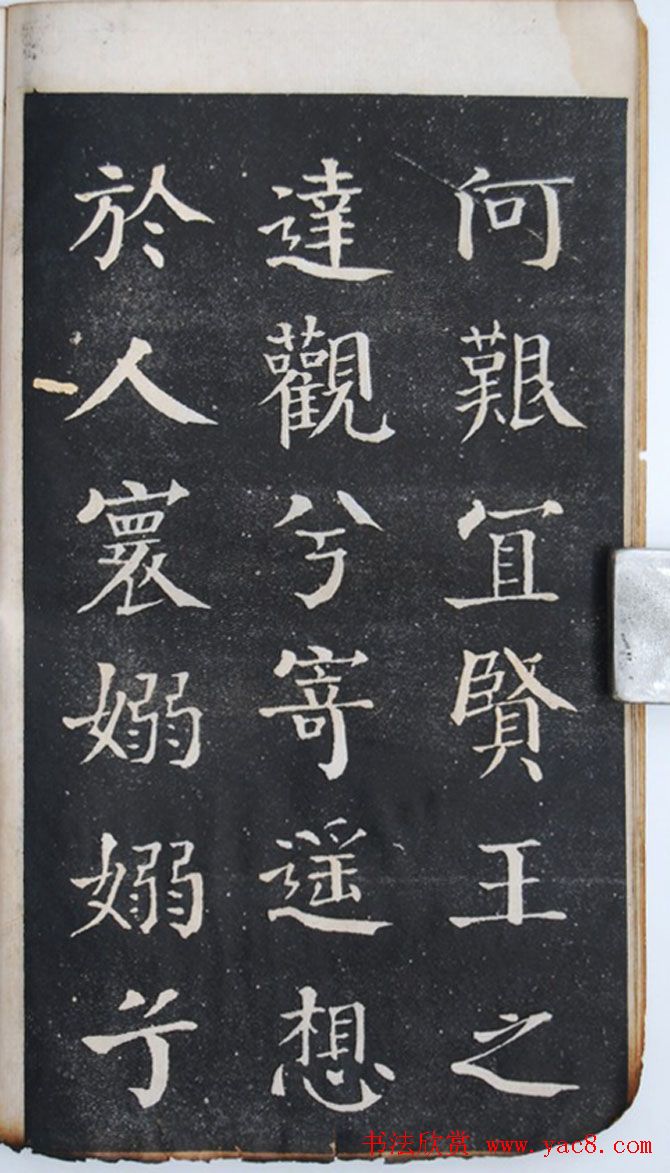 何艱冝賢王之
達觀兮寄遥想
於人寰嫋嫋兮
书法欣赏 www.yac8.com